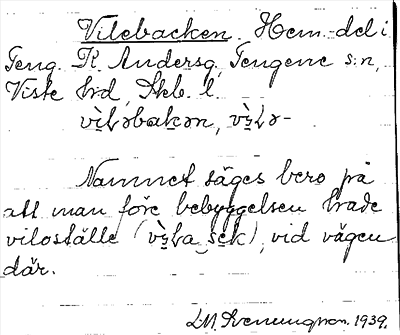 Vilebacken. Hem.-del i
Teng. R. Andersg., Tengene s:n,
Viste hrd, Skb. l.
vìləbakən, vìlə-
Namnet säges bero på
att man före bebyggelsen hade
viloställe (vìla sek), vid vägen
där.
1939.